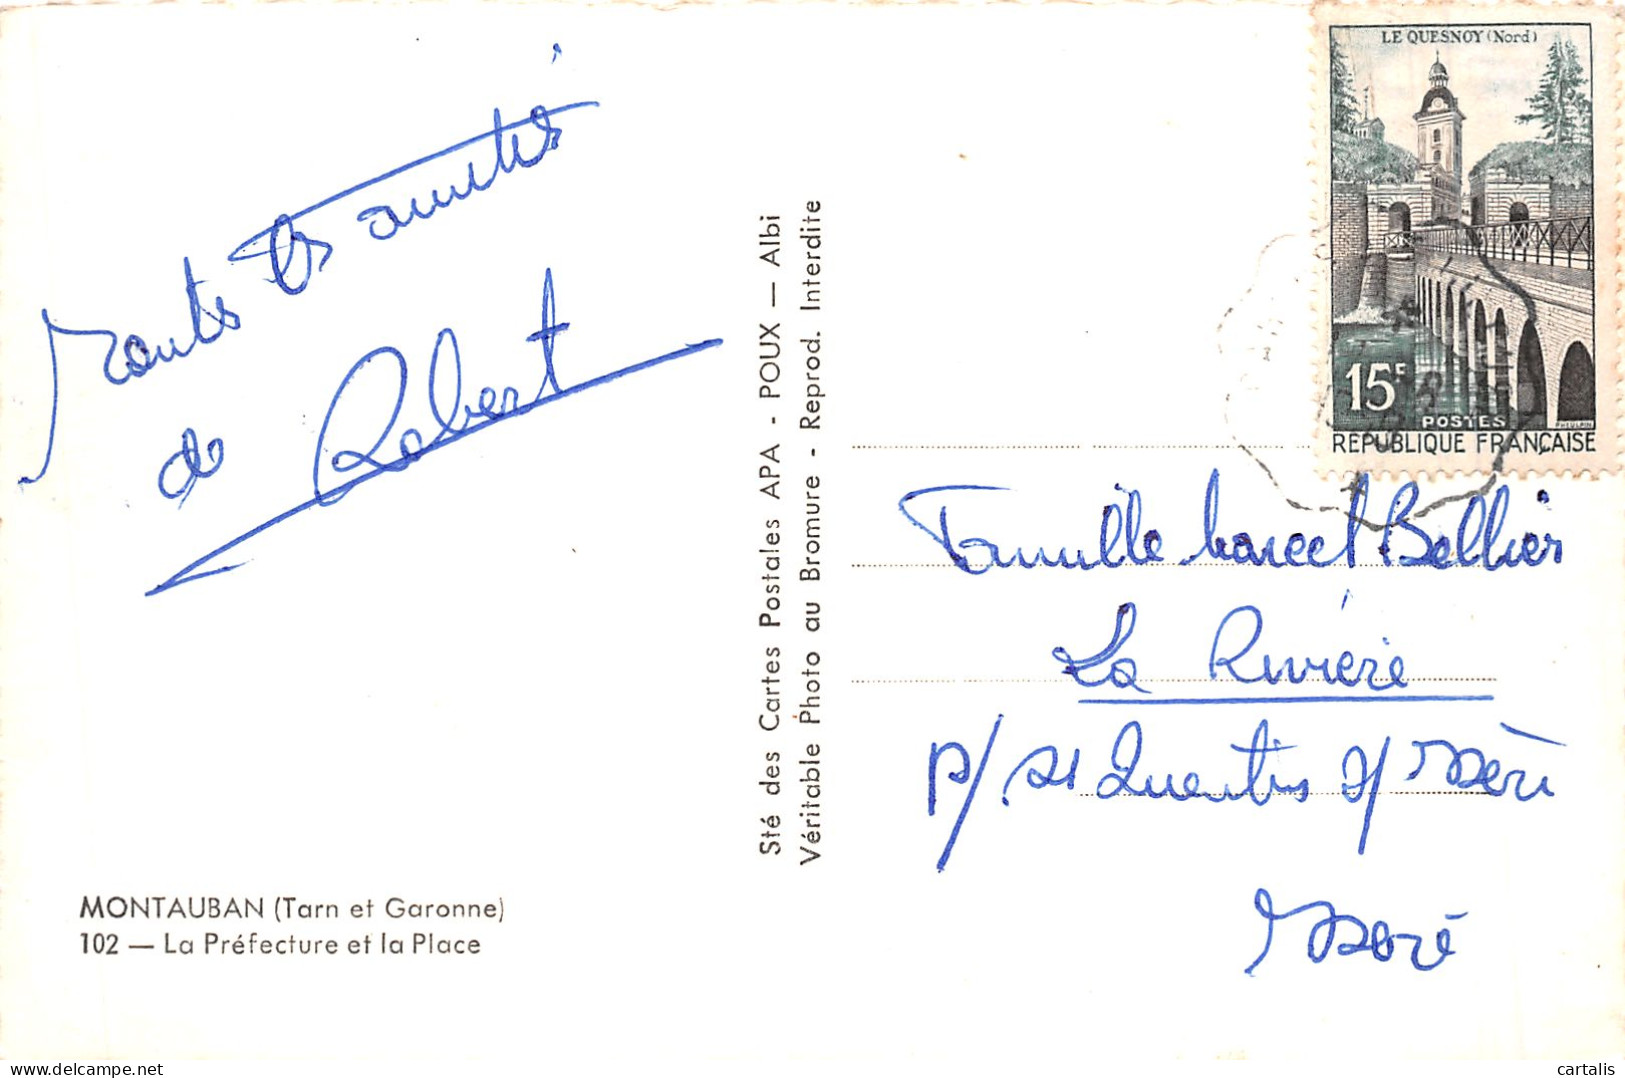 Toutes les amitiés
de Robert
MONTAUBAN (Tarn et Garonne)
102 — La Préfecture et la Place
Sté des Cartes Postales APA - POUX — Albi
Véritable Photo au Bromure - Reprod. Interdite
LE QUESNOY (Nord)
15F
POSTES
PHEULPIN
REPUBLIQUE FRANÇAISE
Famille Marcel Bellier
La Rivière
p/ St Quentin s/ Isère
Isère
cartalis